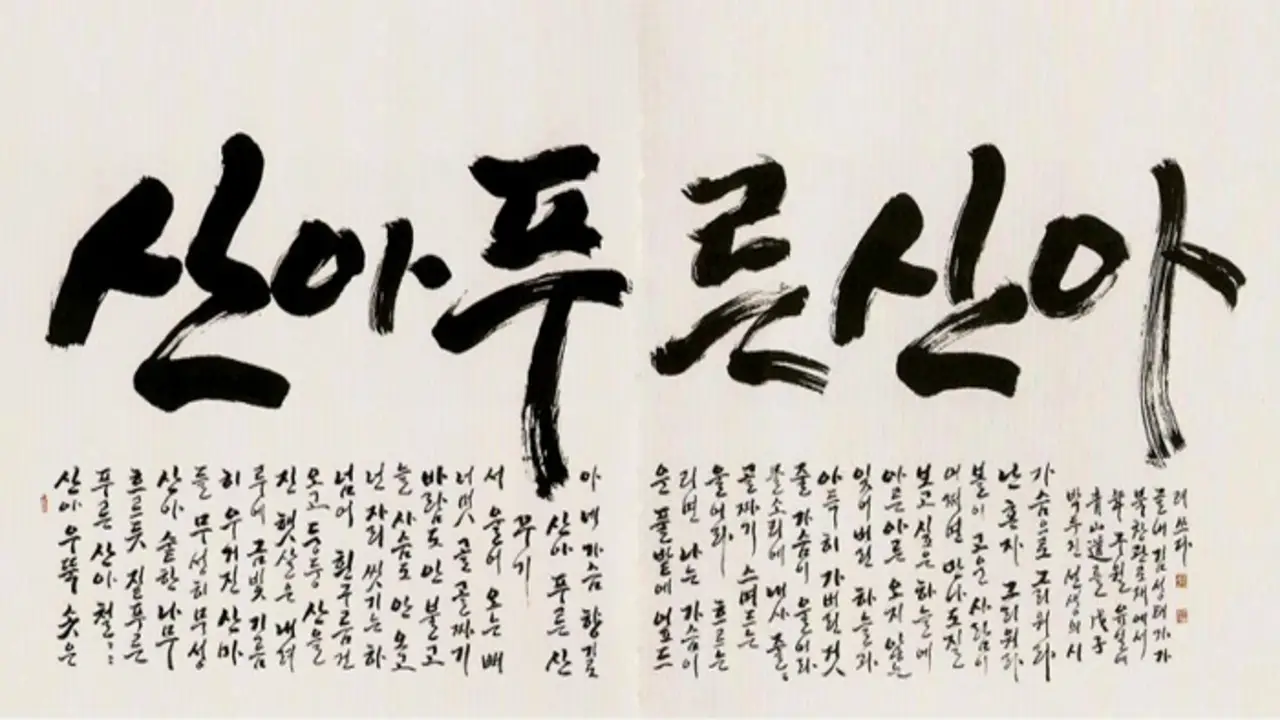 산아푸른산아
산아 우뚝 솟은
푸른 산아 철〻〻
흐르듯 짙푸른
산아 숱한 나무
들 무성히 무성
히 우거진 산마
루에 금빛 기름
진 햇살은 내려
오고 둥둥 산을
넘어 흰구름 건
넌 자리 씻기는 하
늘 사슴도 안 오고
바람도 안 불고
너멋 골 골짜기
서 울어 오는 뻐
꾸기
산아 푸른 산
아 네 가슴 향기로
운 풀밭에 엎드
리면 나는 가슴이
울어라 흐르는
골짜기 스며드는
물소리에 내사 줄〻
줄 가슴이 울어라
아득히 가버린 것
잊어버린 하늘과
아른아른 오지 않는
보고 싶은 하늘에
어쩌면 만나도질
볼이 고운 사람이
난 혼자 그리워라
가슴으로 그리워라
박두진 선생의 시
靑山道를 戊子
에서
김성태가 가
려 쓰다